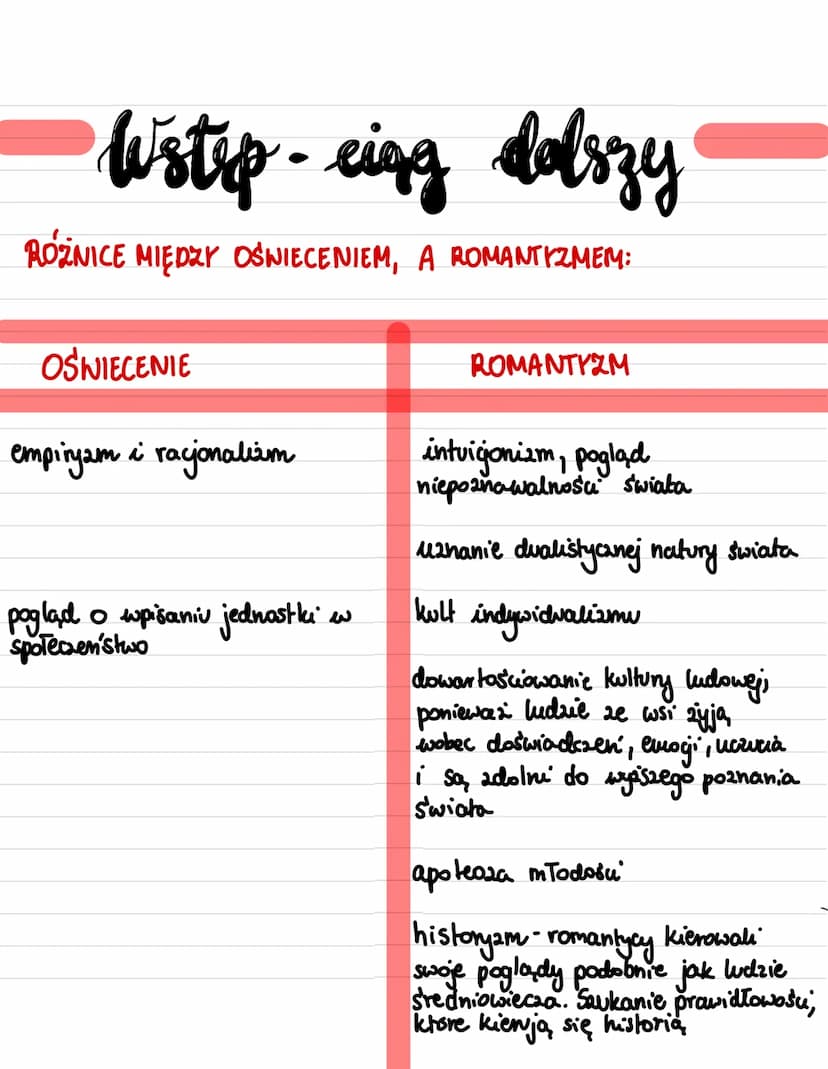 Wstęp - ciąg dalszy
RÓŻNICE MIĘDZY OŚWIECENIEM, A ROMANTYZMEM:
OŚWIECENIE
ROMANTYZM
empiryzm i racjonalizm
pogląd o wpisaniu jednostki w
społeczeństwo
intuicjonizm, pogląd
niepoznawalności świata
uznanie dualistycznej natury świata
kult indywidualizmu
dowartościowanie kultury ludowej,
ponieważ ludzie ze wsi żyją
wobec doświadczeń, emocji, uczucia
i są zdolni do wyższego poznania
świata
apoteoza młodości
historyzm - romantycy kierowali
swoje poglądy podobnie jak ludzie
średniowiecza. Szukanie prawidłowości,
które kierują się historią